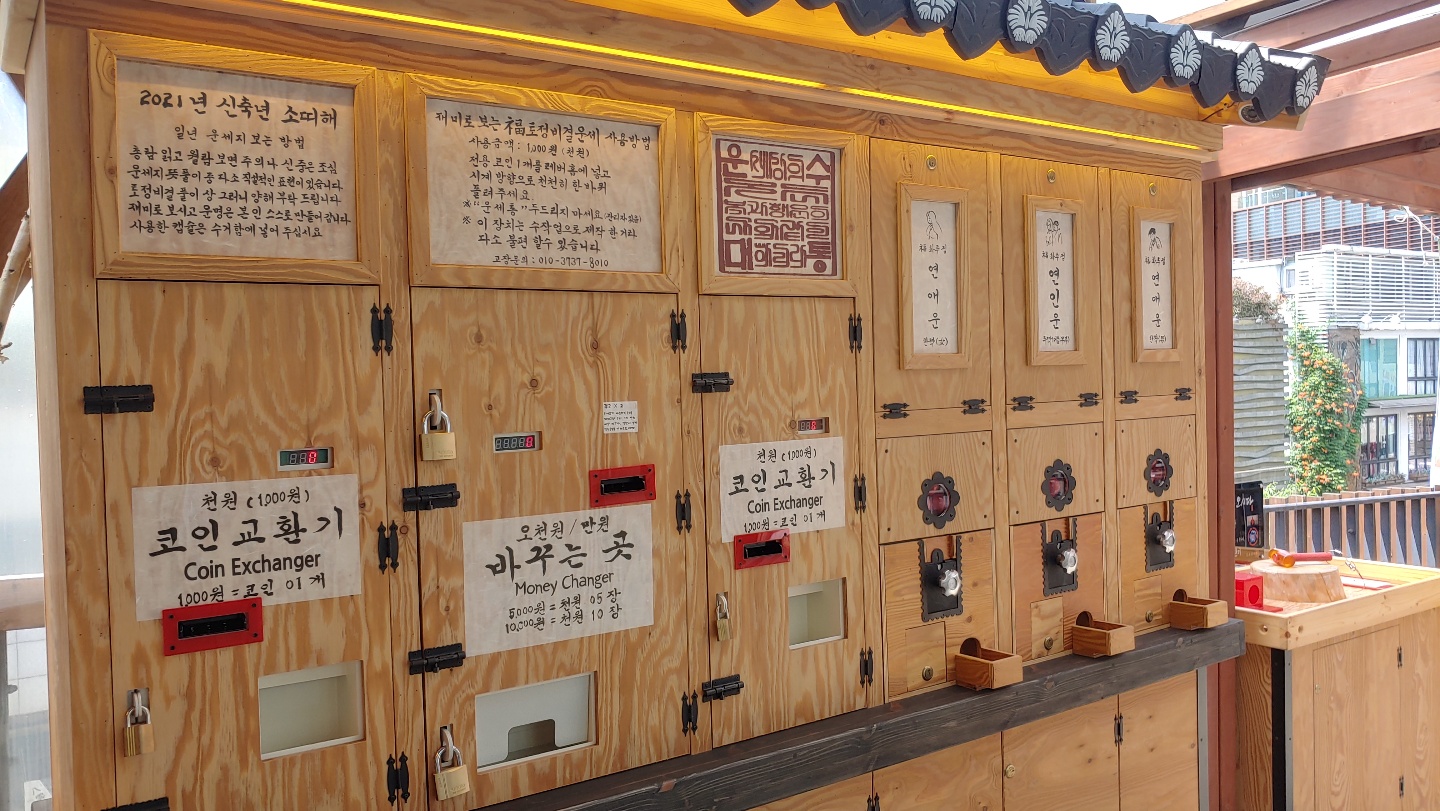 2021년 신축년 소띠해
일년 운세지 보는 방법
총람 읽고 월람 보면 주의나 신중은 조심
운세지 뜻풀이 중 다소 직설적인 표현이 있습니다.
토정비결 풀이 상 그러니 양해 부탁 드립니다.
재미로 보시고 운명은 본인 스스로 만들어 갑니다.
사용한 캡슐은 수거함에 넣어 주십시요
재미로 보는 福토정비결운세 사용방법
사용금액 : 1,000원 (천원)
전용 코인 1개를 레버 홈에 넣고
시계 방향으로 천천히 한바퀴
돌려주세요.
※ "운세통" 두드리지 마세요
※ 이 장치는 수작업으로 제작 한거라
다소 불편 할수 있습니다.
고장문의 : 010-3737-8010
연애운
연인운
연애운
천원 (1,000원)
코인교환기
Coin Exchanger
1,000원 = 코인 01개
오천원 / 만원
바꾸는 곳
Money Changer
5,000원 = 천원 05장
10,000원 = 천원 10장
천원 (1,000원)
코인교환기
Coin Exchanger
1,000원 = 코인 01개